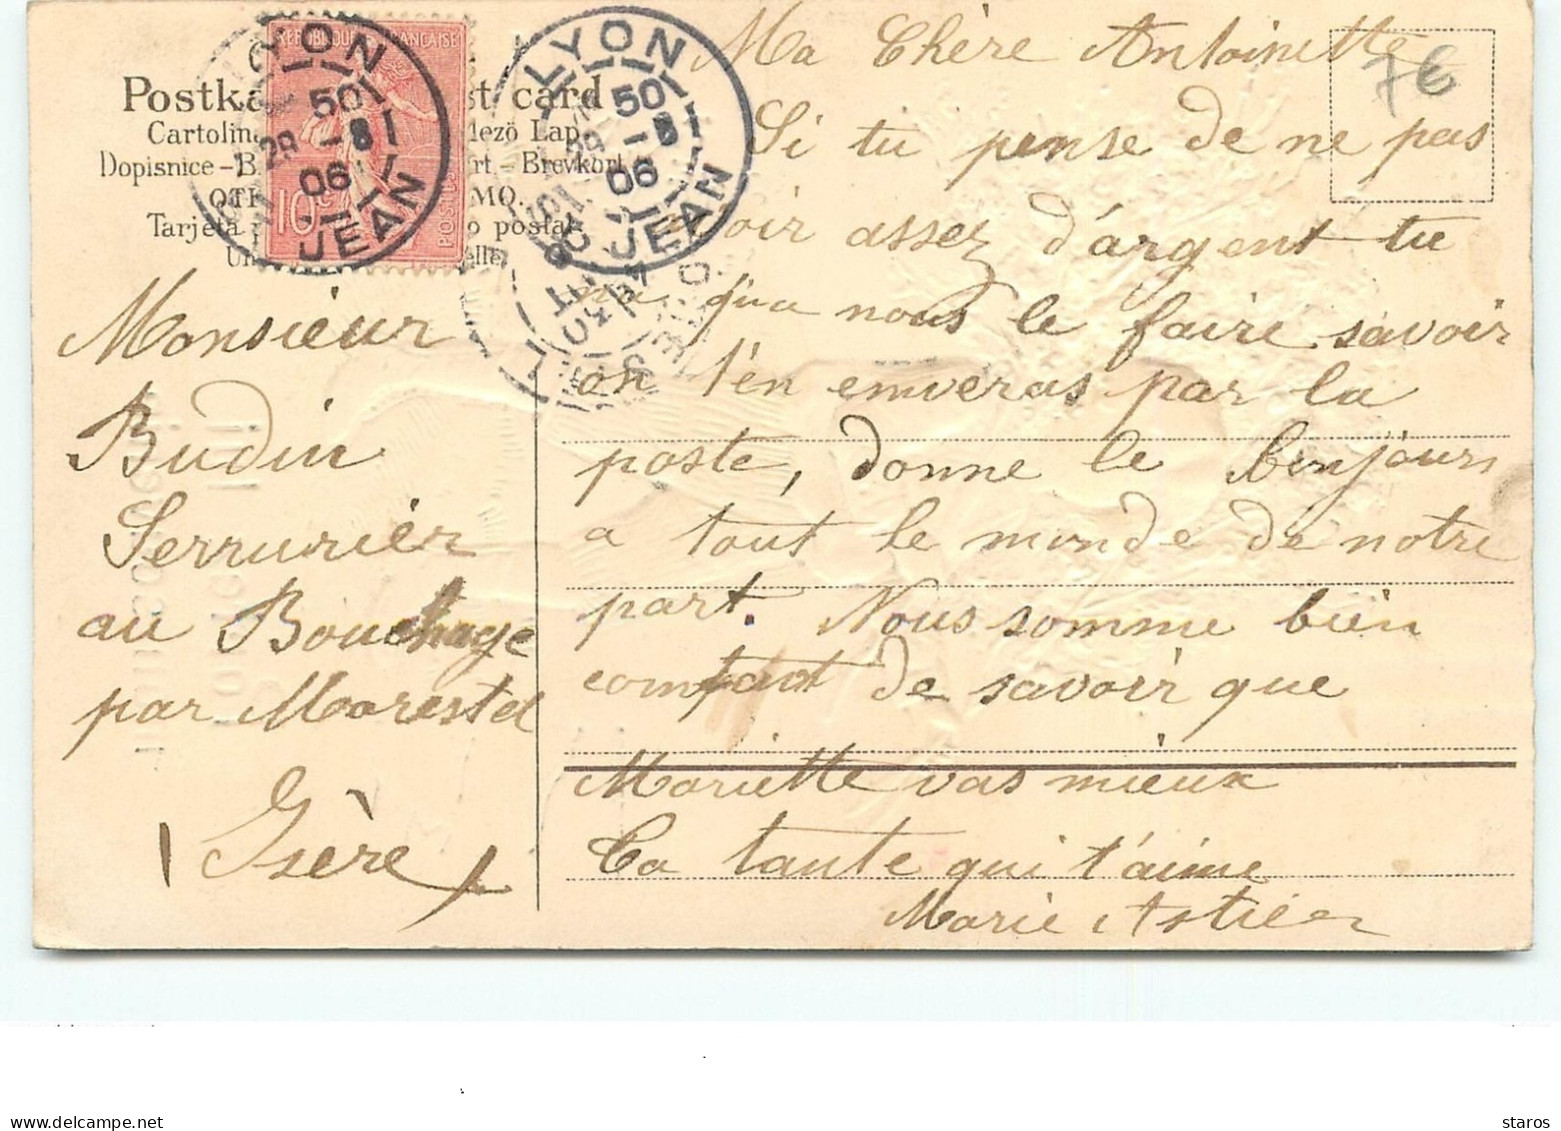 Postka st card
Cartolina Mezö Lap.
Dopisnice - B rt - Brevkort
OT MO.
Tarjeta o postal.
Un elle
REPUBLIQUE FRANÇAISE
10c
POSTES
LYON
50
28 -8
06
ST JEAN
LYON
50
28 -8
06
ST JEAN
7€
Ma Chère Antoinette
Si tu pense de ne pas
avoir assez d'argent tu
na qu'a nous le faire savoir
on t'en enveras par la
poste, donne le binjours
a tout le monde de notre
part. Nous somme bien
contant de savoir que
Mariette vas mieux
Ta tante qui t'aime
Marie Astier
Monsieur
Budin
Serrurier
au Bouchage
par Morestel
(Isère)
delcampe.net
staros